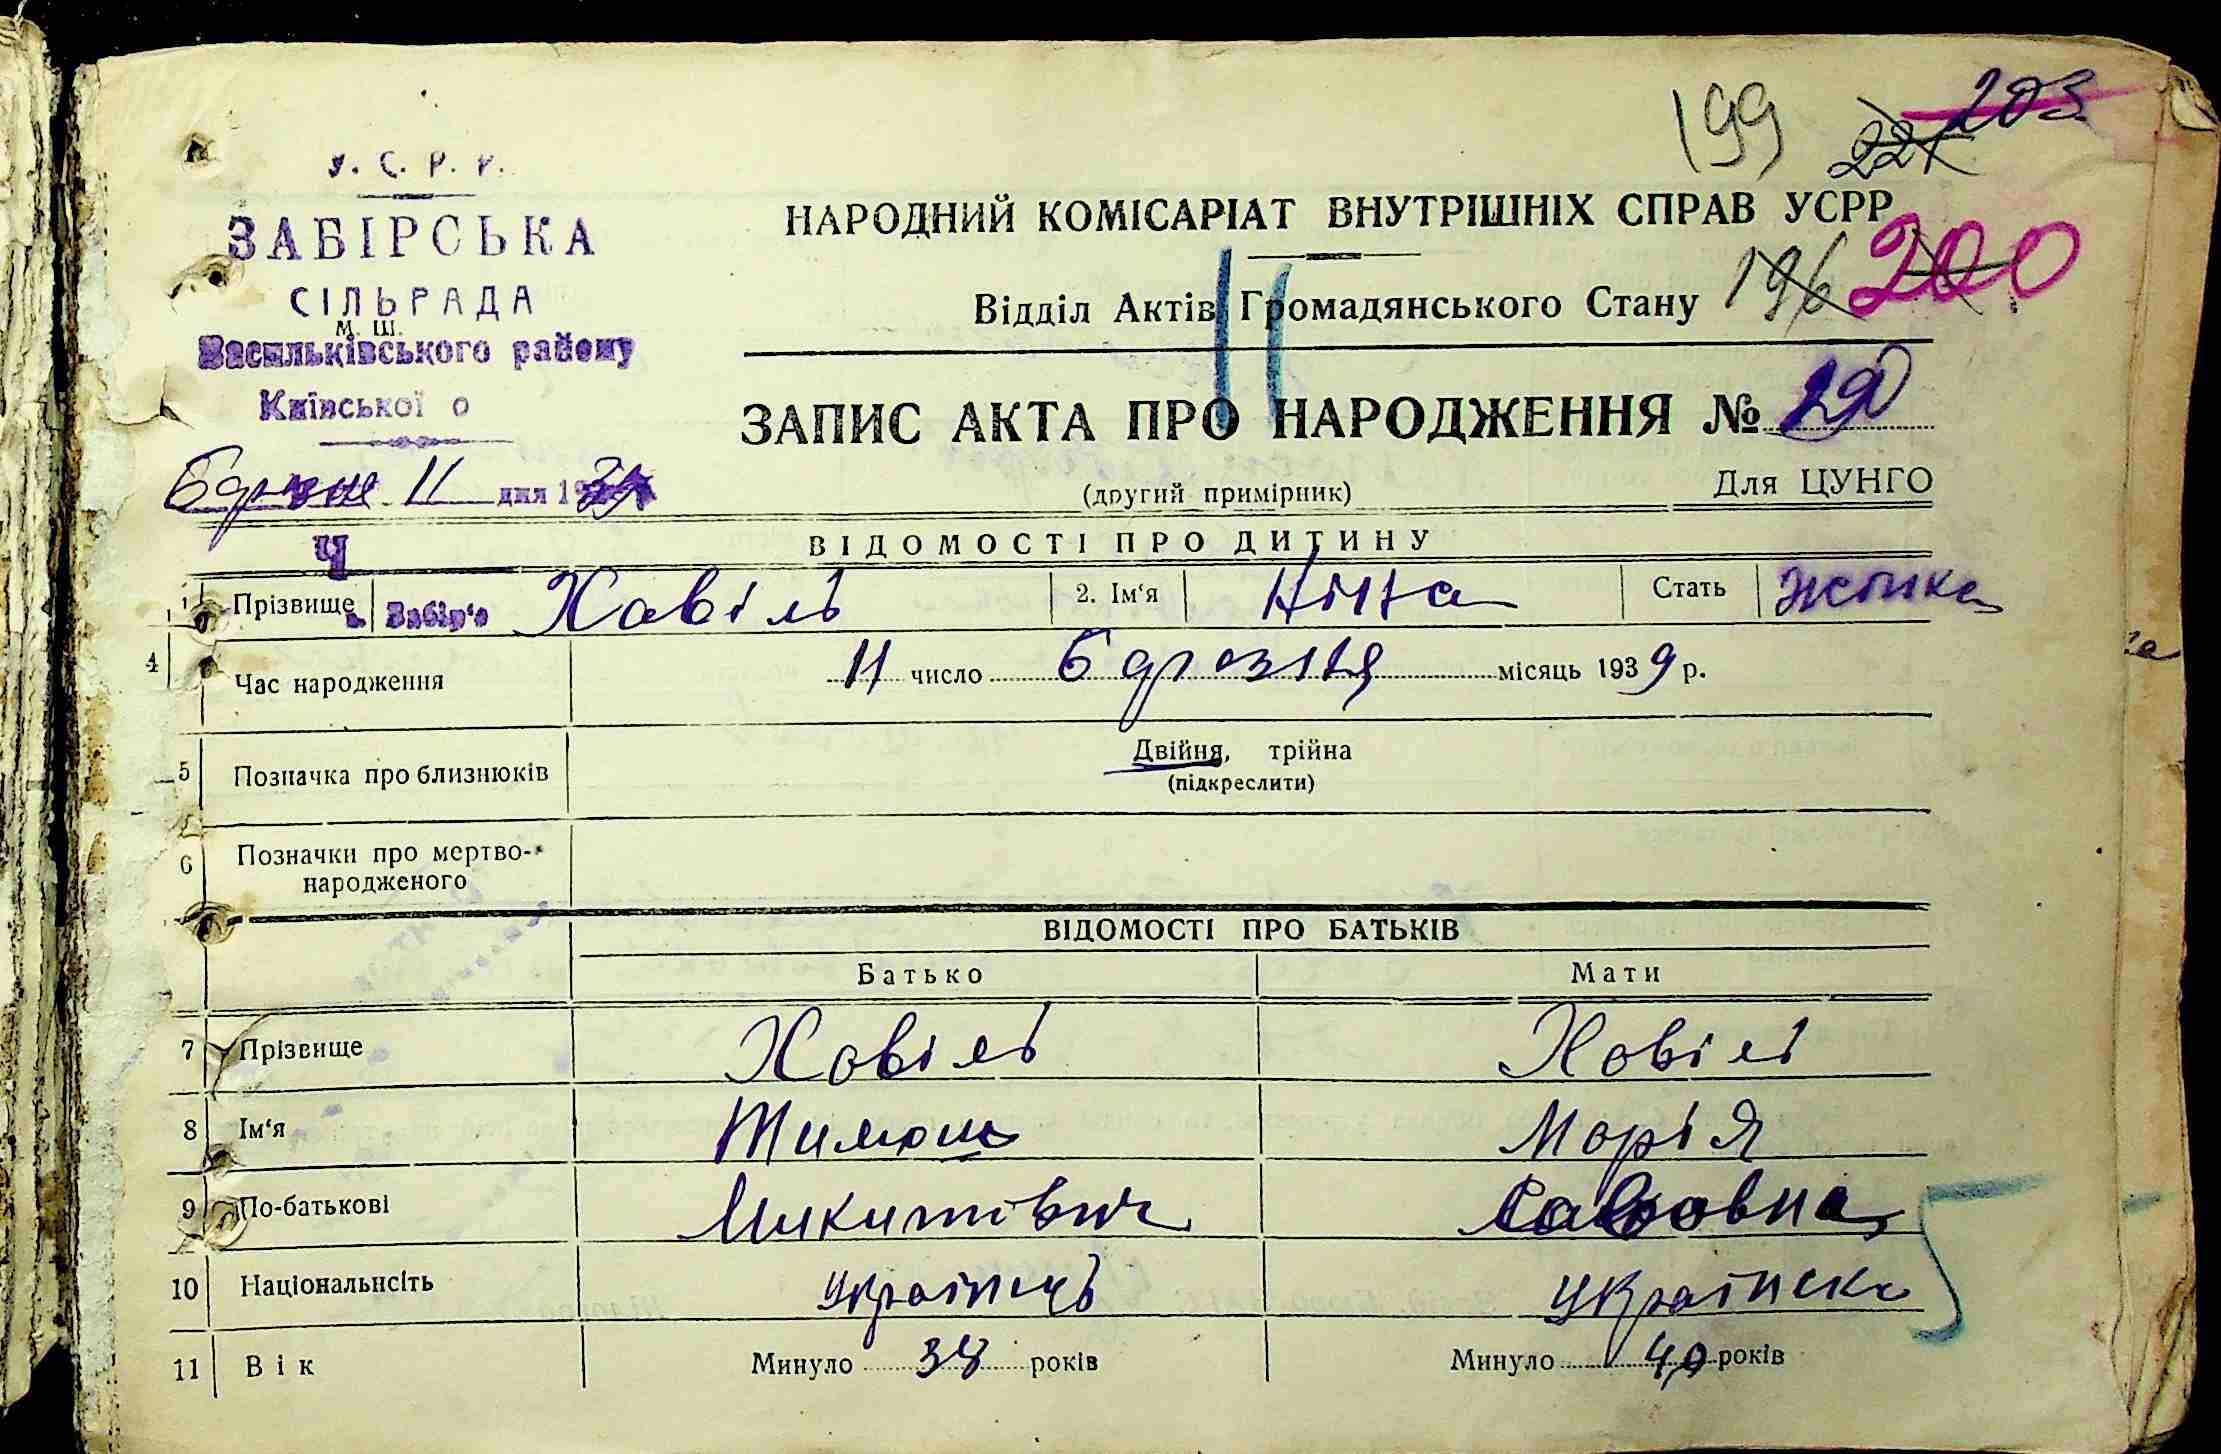 199 221 203
У. С. Р. Р.
ЗАБІРСЬКА
СІЛЬРАДА
М. Ш.
Васильківського району
Київської о
НАРОДНИЙ КОМІСАРІАТ ВНУТРІШНІХ СПРАВ УСРР
196 200
Відділ Актів Громадянського Стану
ЗАПИС АКТА ПРО НАРОДЖЕННЯ №
11 дня 19
(другий примірник)
Для ЦУНГО
Ч
ВІДОМОСТІ ПРО ДИТИНУ
1 Прізвище с. Забір'є Ховіль 2. Ім‘я Ніна Стать жінка
4 Час народження 11 число березня місяць 1939 р.
5 Позначка про близнюків Двійня, трійна
(підкреслити)
6 Позначки про мертво-
народженого
ВІДОМОСТІ ПРО БАТЬКІВ
Батько Мати
7 Прізвище Ховіль Ховіль
8 Ім‘я Тимош Марія
9 По-батькові Микитівич
10 Національнсіть Українець Українска
11 Вік Минуло 38 років Минуло 40 років
5